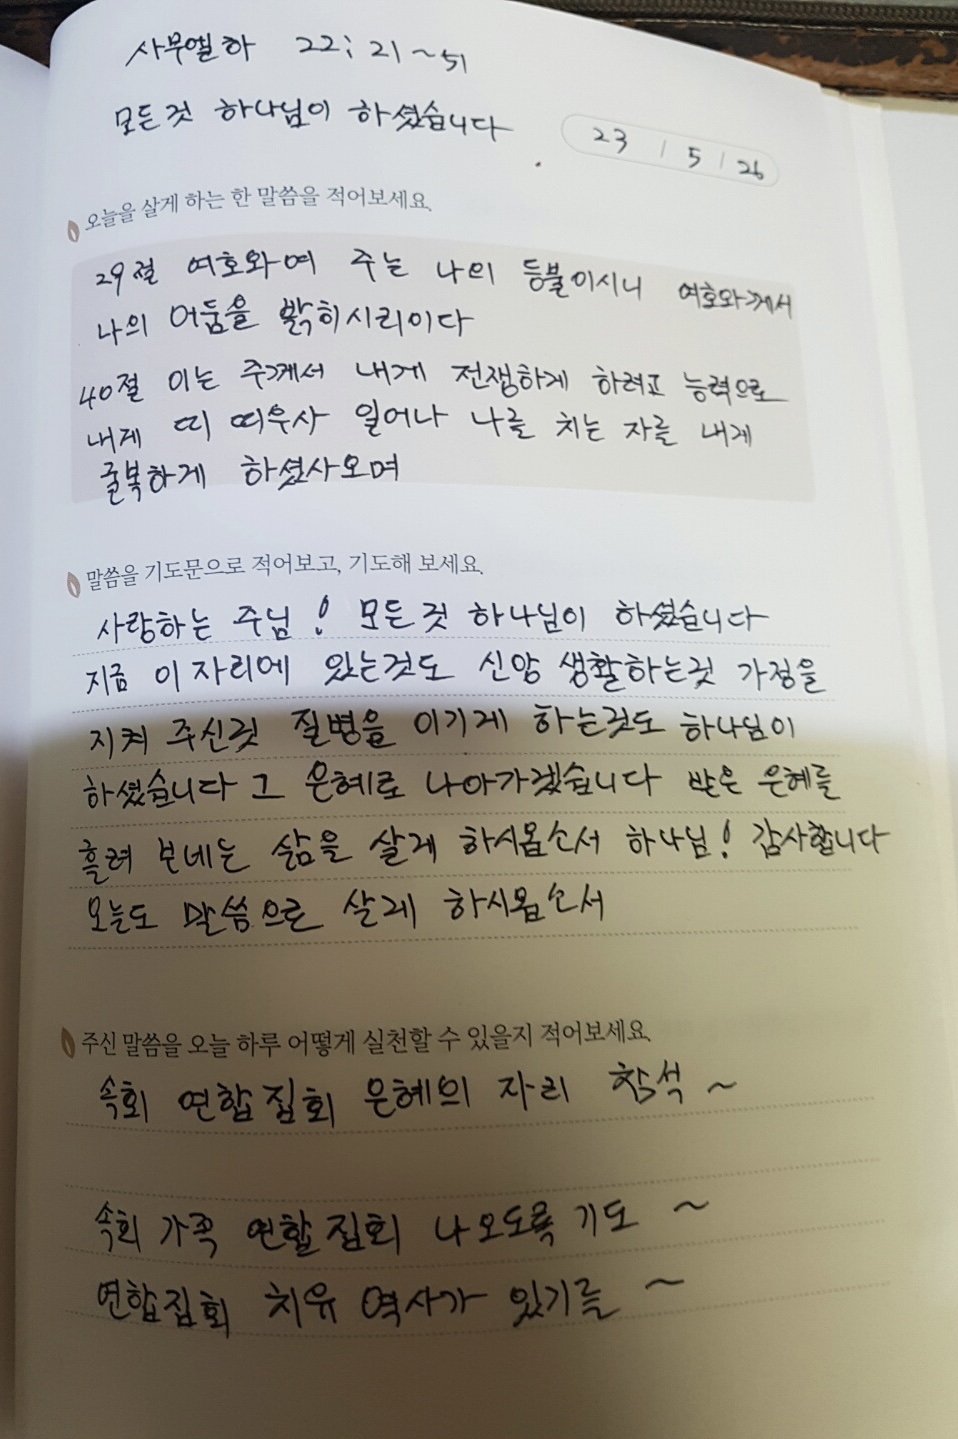 사무엘하 22; 21~51
모든것 하나님이 하셨습니다
23 / 5 / 26
오늘을 살게 하는 한 말씀을 적어보세요.
29절 여호와여 주는 나의 등불이시니 여호와께서
나의 어둠을 밝히시리이다
40절 이는 주께서 내게 전쟁하게 하려고 능력으로
내게 띠 띠우사 일어나 나를 치는 자를 내게
굴복하게 하셨사오며
말씀을 기도문으로 적어보고, 기도해 보세요.
사랑하는 주님! 모든것 하나님이 하셨습니다
지금 이 자리에 있는것도 신앙 생활하는것 가정을
지켜 주신것 질병을 이기게 하는것도 하나님이
하셨습니다 그 은혜로 나아가겠습니다 받은 은혜를
흘려 보네는 삶을 살게 하시옵소서 하나님! 감사합니다
오늘도 말씀으로 살게 하시옵소서
주신 말씀을 오늘 하루 어떻게 실천할 수 있을지 적어보세요.
속회 연합집회 은혜의 자리 참석 ~
속회 가족 연합집회 나오도록 기도 ~
연합집회 치유 역사가 있기를 ~